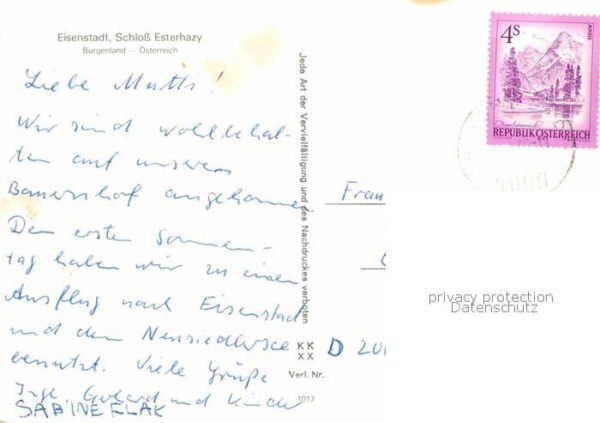 Eisenstadt, Schloß Esterhazy
Burgenland – Österreich
Liebe Mutti!
Wir sind wohlbehal-
ten auf unserem
Bauernhof angekommen
Den ersten Sonnen-
tag haben wir zu einem
Ausflug nach Eisenstadt
und dem Neusiedlersee
benutzt. Viele Grüße
Inge, und Kinder
SABINE FLAK
Jede Art der Vervielfältigung und des Nachdruckes verboten
KK
XX
Verl. Nr.
1017
4S
REPUBLIK ÖSTERREICH
Frau
D 200
privacy protection
Datenschutz